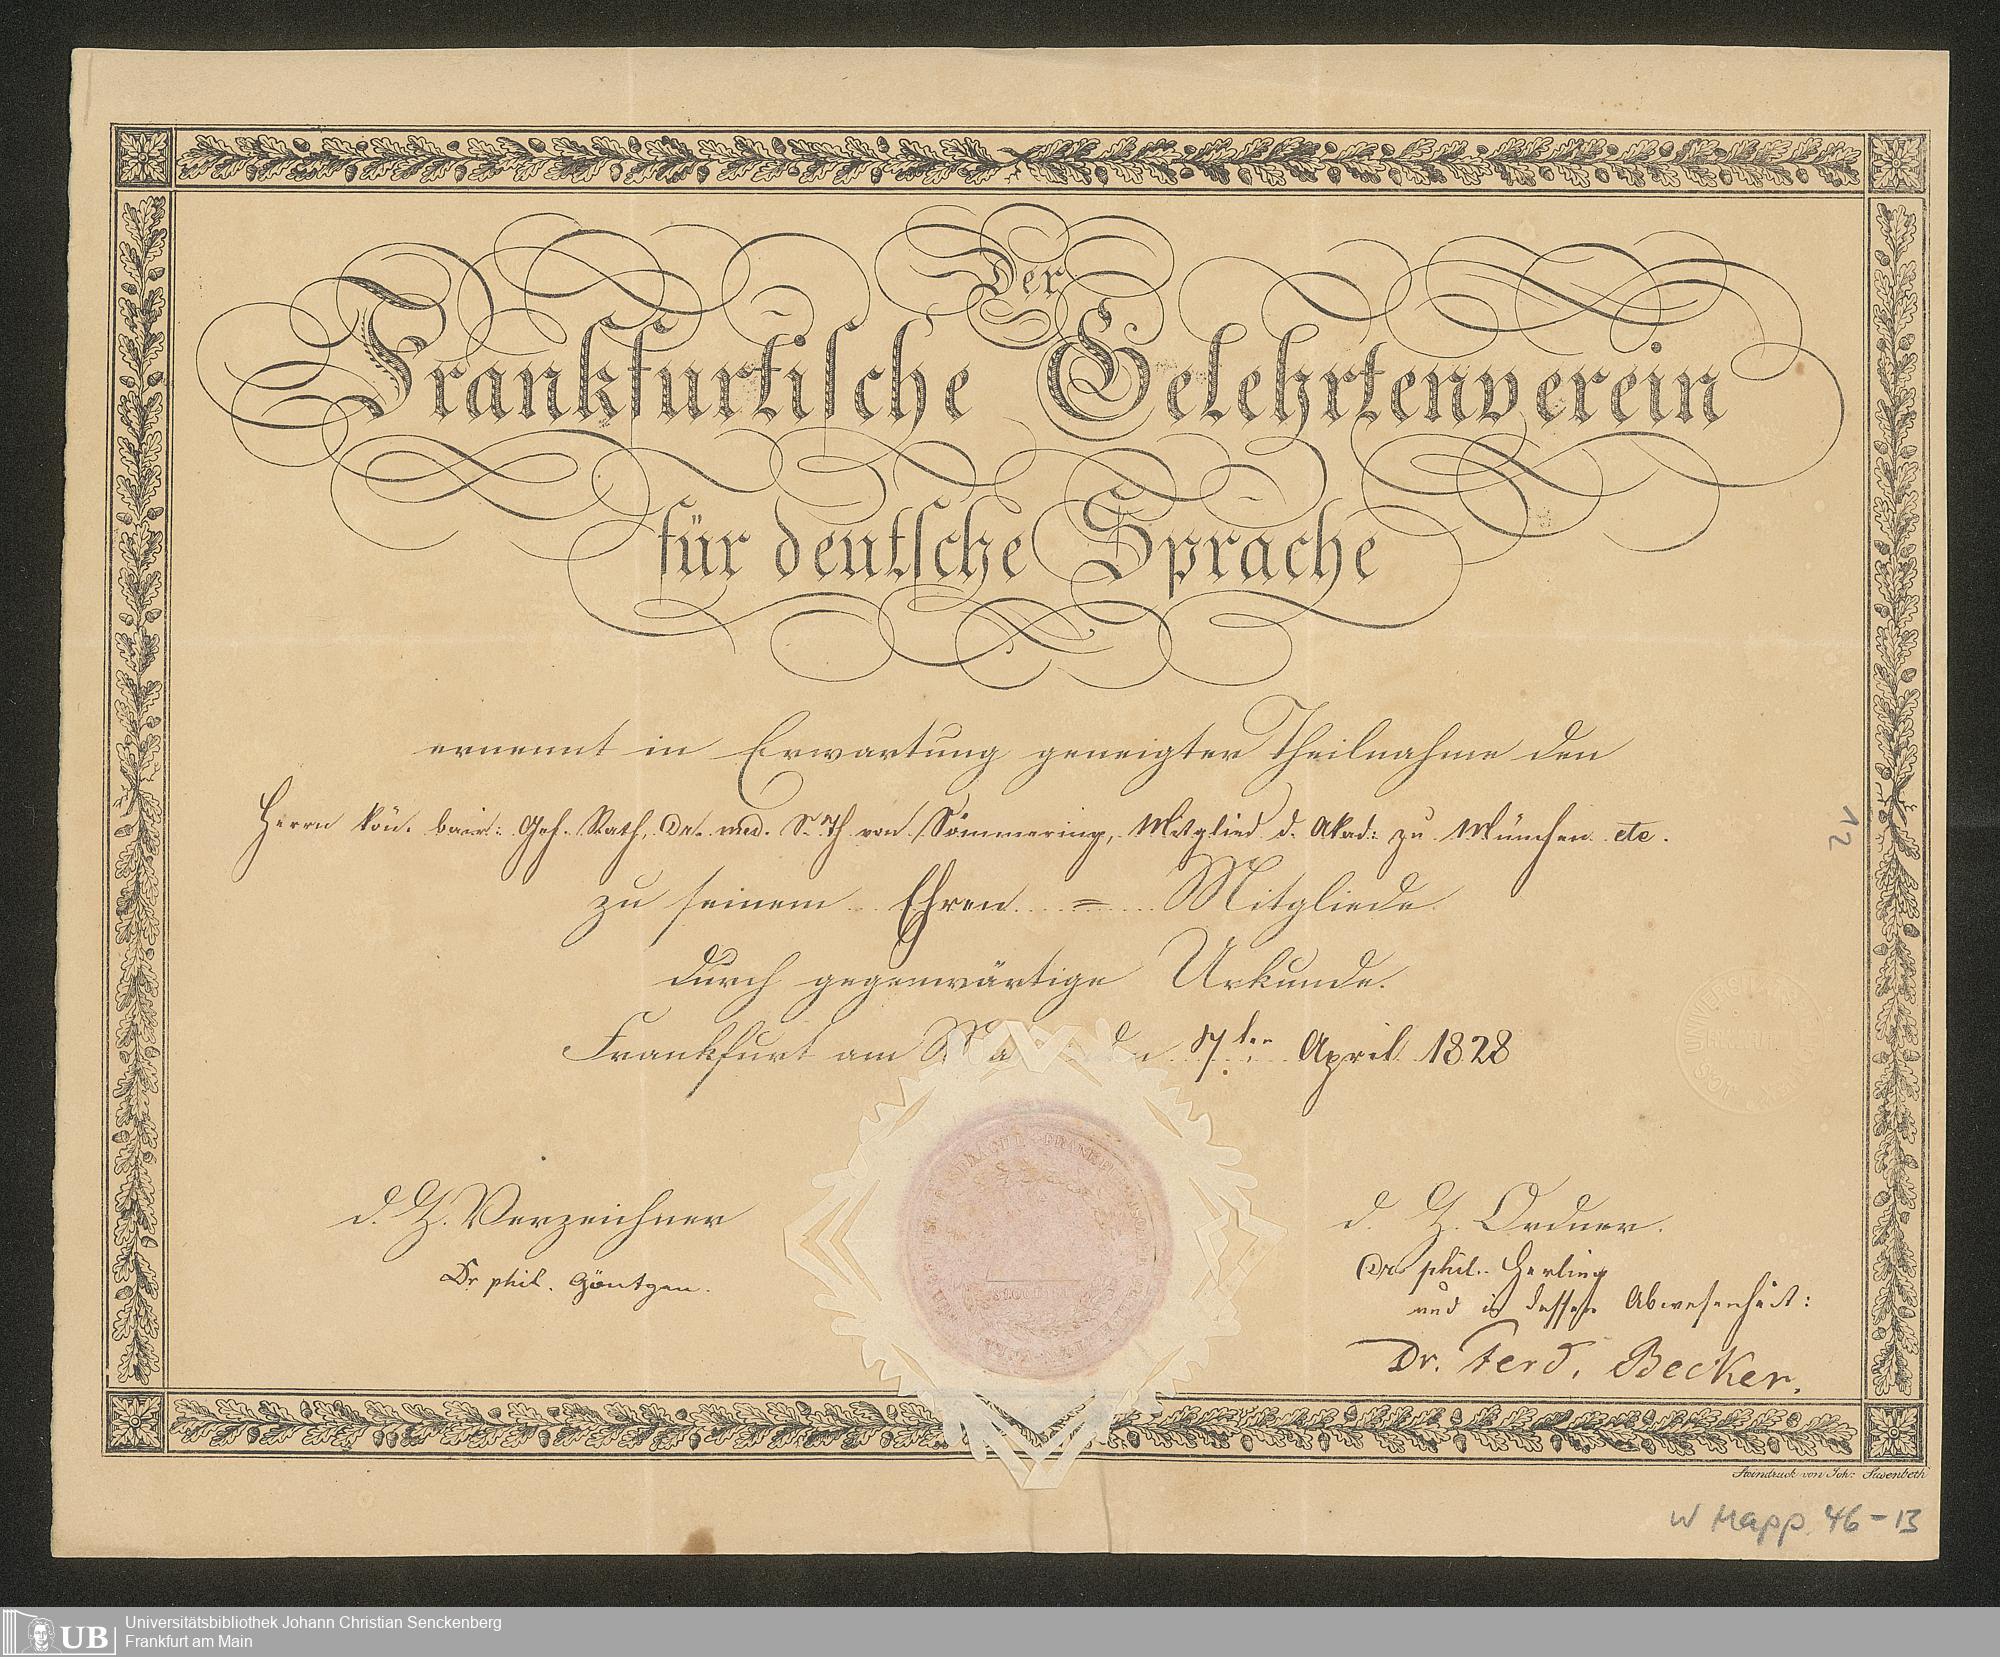 Der
Frankfurtische Gelehrtenverein
für deutsche Sprache
ernennt in Erwartung geneigter Theilnahme den
Herrn kön. bair: Geh. Rath, Dr. med. S. Th von Sömmering, Mitglied d. Akad: zu München etc.
zu seinem Ehren = Mitgliede
durch gegenwärtige Urkunde.
Frankfurt am Ma den 17ten April 1828
d. Z. Verzeichner
Dr phil. Göntgen.
d. Z. Ordner.
Dr. phil. Herling
und in dessen Abwesenheit:
Dr. Ferd. Becker.
Steindruck von Joh: Susenbeth
12
W Mapp. 46-13
UB
Universitätsbibliothek Johann Christian Senckenberg
Frankfurt am Main